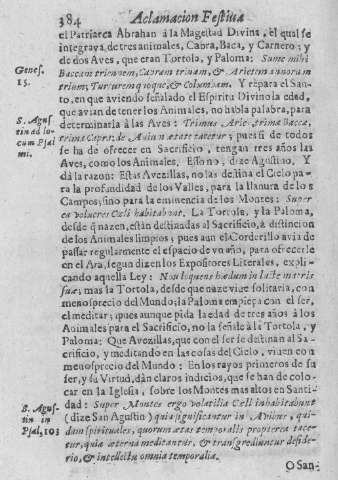 384 Aclamacion Festiva
el Patriarca Abrahan à la Magestad Divina, el qual se
integrava, de tres animales, Cabra, Baca, y Carnero; y
de dos Aves, que eran Tortola, y Paloma: Sume mihi
Genes. 15.
Baccam triennem, Capram trimam, & Arietem annorum
trium; Turturem quoque, & Columbam. Y repara el San-
to, en que aviendo señalado el Espiritu Divino la edad,
que avian de tener los Animales, no habla palabra, para
S. Augustin ad locum Psalmi.
determinarla à las Aves: Trimus Aries, trima Bacca,
trima Capra; de Avium ætate tacetur; pues si de todos
se ha de ofrecer en Sacrificio, tengan tres años las
Aves, como los Animales. Esso no; dize Agustino. Y
dà la razon: Estas Avezillas, no las destina el Cielo pa-
ra la profundidad de los Valles, para la llanura de los
Campos, sino para la eminencia de los Montes: Super
ea volucres Cæli habitabunt. La Tortola, y la Paloma,
desde q nazen, están destinadas al Sacrificio, à distincion
de los Animales limpios; pues aun el Corderillo avia de
passar regularmente el espacio de vn año, para ofrecerle
en el Ara, segun dizen los Expositores Literales, expli-
cando aquella Ley: Non coques hædum in lacte matris
suæ; mas la Tortola, desde que naze vive solitaria, con
menosprecio del Mundo; la Paloma empieça con el ser,
el meditar; pues aunque pida la edad de tres años à los
Animales para el Sacrificio, no la señale à la Tortola, y
Paloma: Que Avezillas, que con el ser se destinan al Sa-
crificio, y meditando en las cosas del Cielo, viven con
menosprecio del Mundo: En los rayos primeros de su
ser, y su Virtud, dàn claros indicios, que se han de colo-
car en la Iglesia, sobre los Montes mas altos en Santi-
S. Agustin in Psal. 103
dad: Super Montes ergo volatilia Cæli inhabitabunt
(dize San Agustin) quia significantur in Avibus, qui-
dam spirituales, quorum ætas temporalis propterea tace-
tur, quia æterna meditantur, & transgrediuntur deside-
rio, & intellectu omnia temporalia.
O San-